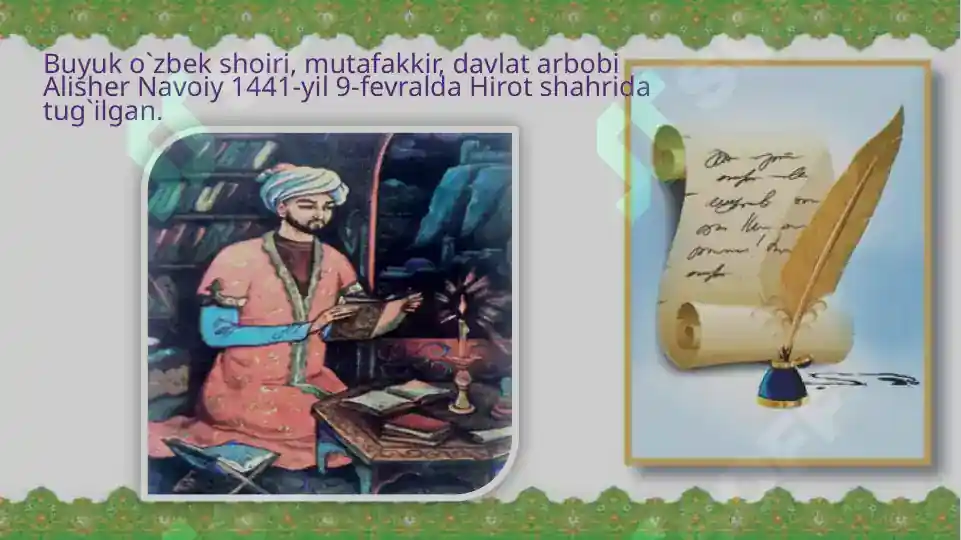 Buyuk o`zbek shoiri, mutafakkir, davlat arbobi
Alisher Navoiy 1441-yil 9-fevralda Hirot shahrida
tug`ilgan.